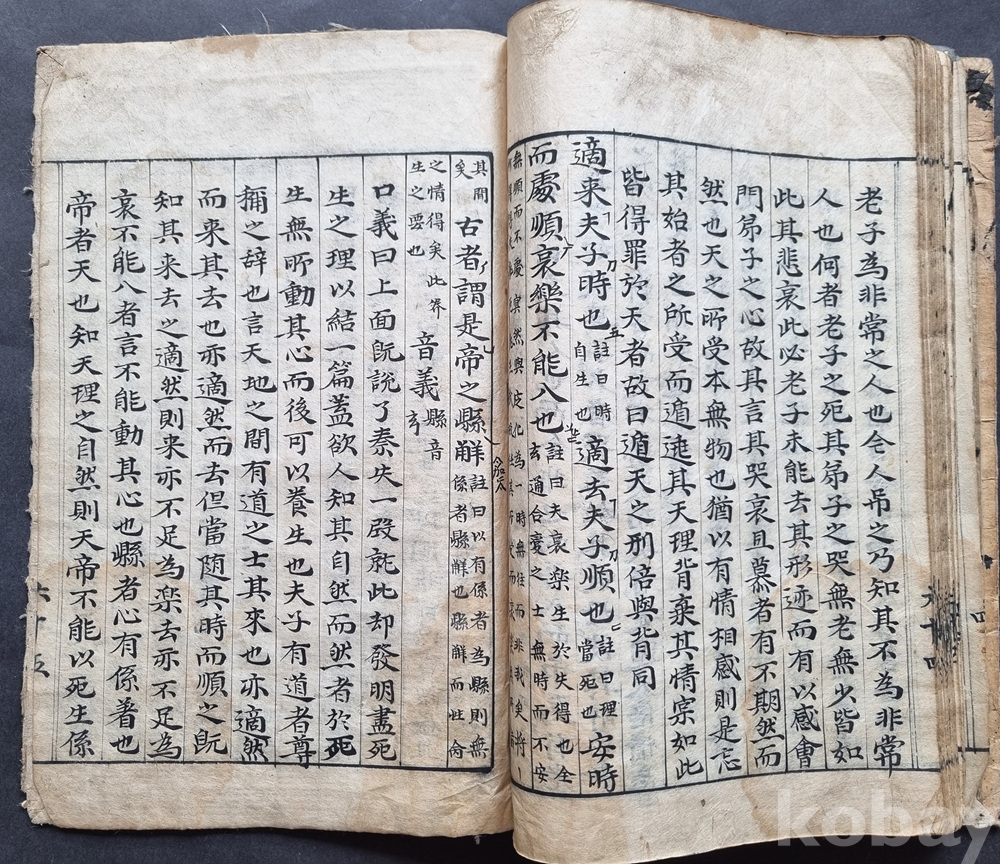 老子為非常之人也令人吊之乃知其不為非常
人也何者老子之死其弟子之哭無老無少皆如
此其悲哀此必老子未能去其形迹而有以感會
門弟子之心故其言其哭哀且慕者有不期然而
然也天之所受本無物也猶以有情相感則是忘
其始者之所受而遁逃其天理背棄其情実如此
皆得罪於天者故曰遁天之刑倍與背同
適来夫子時也 註曰時自生也 適去夫子順也 註曰理當死也 安時
而處順哀樂不能入也 註曰夫哀楽生於失得也全玄通合變之士無時而不安
無順而不
其間
矣 古者謂是帝之縣觧 註曰以有係者為縣則無係者縣觧也縣觧而性命
之情得矣此养生之要也 音義 縣音玄
口義曰上面既說了秦失一段就此却發明盡死
生之理以結一篇蓋欲人知其自然而然者於死
生無所動其心而後可以養生也夫子有道者尊
稱之辞也言天地之間有道之士其來也亦適然
而来其去也亦適然而去但當随其時而順之既
知其来去之適然則来亦不足為楽去亦不足為
哀不能入者言不能動其心也縣者心有係著也
帝者天也知天理之自然則天帝不能以死生係
六十五
kobay